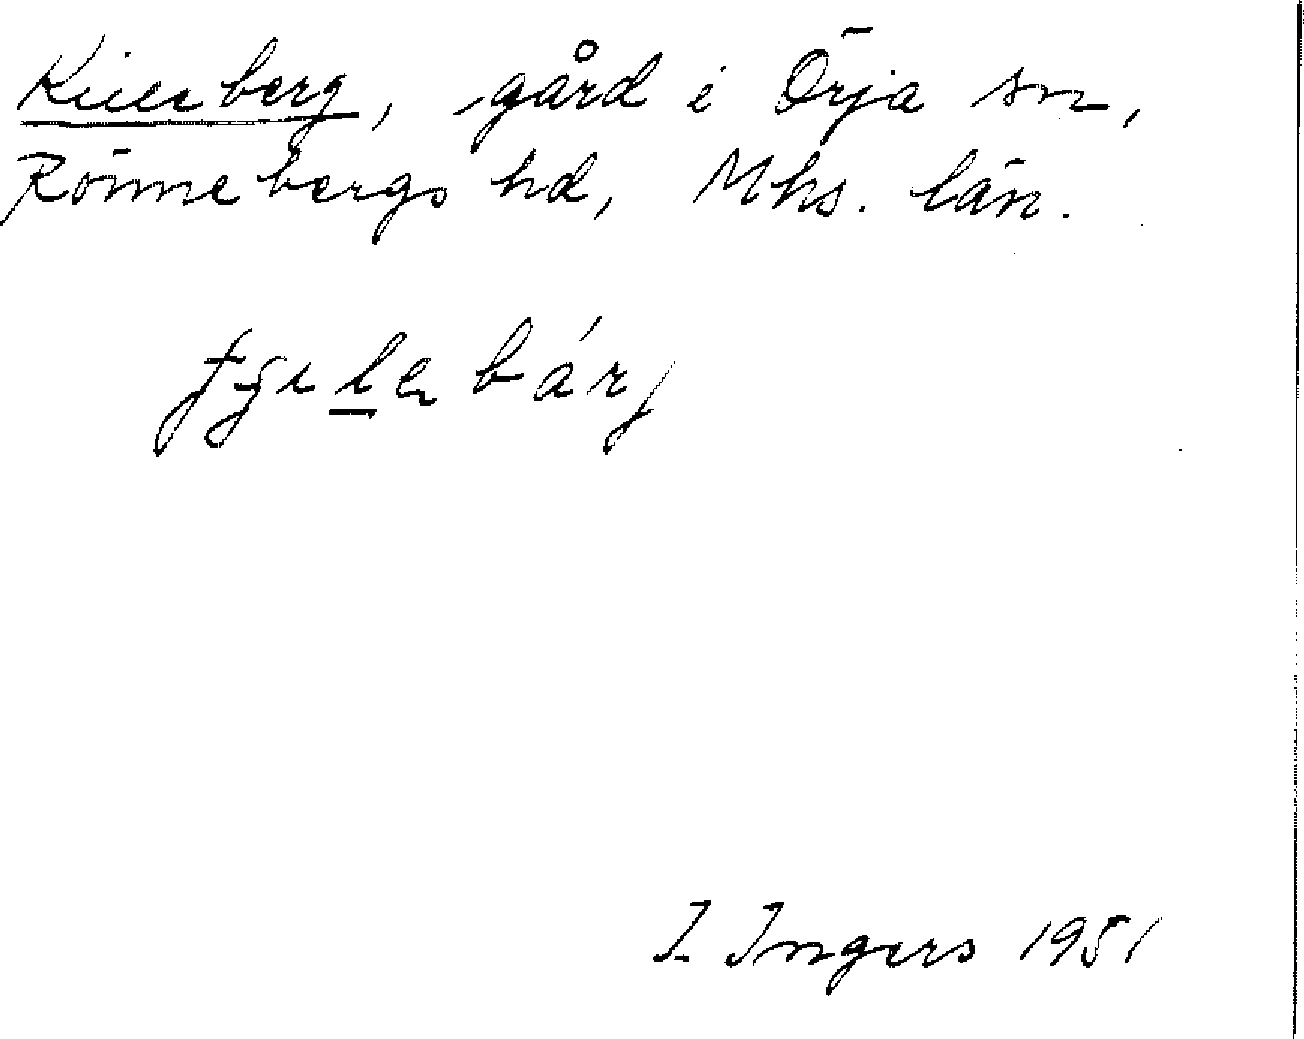 Killeberg, gård i Örja sn,
Rönnebergs hd, Mhs. län.
I. Ingers 1951